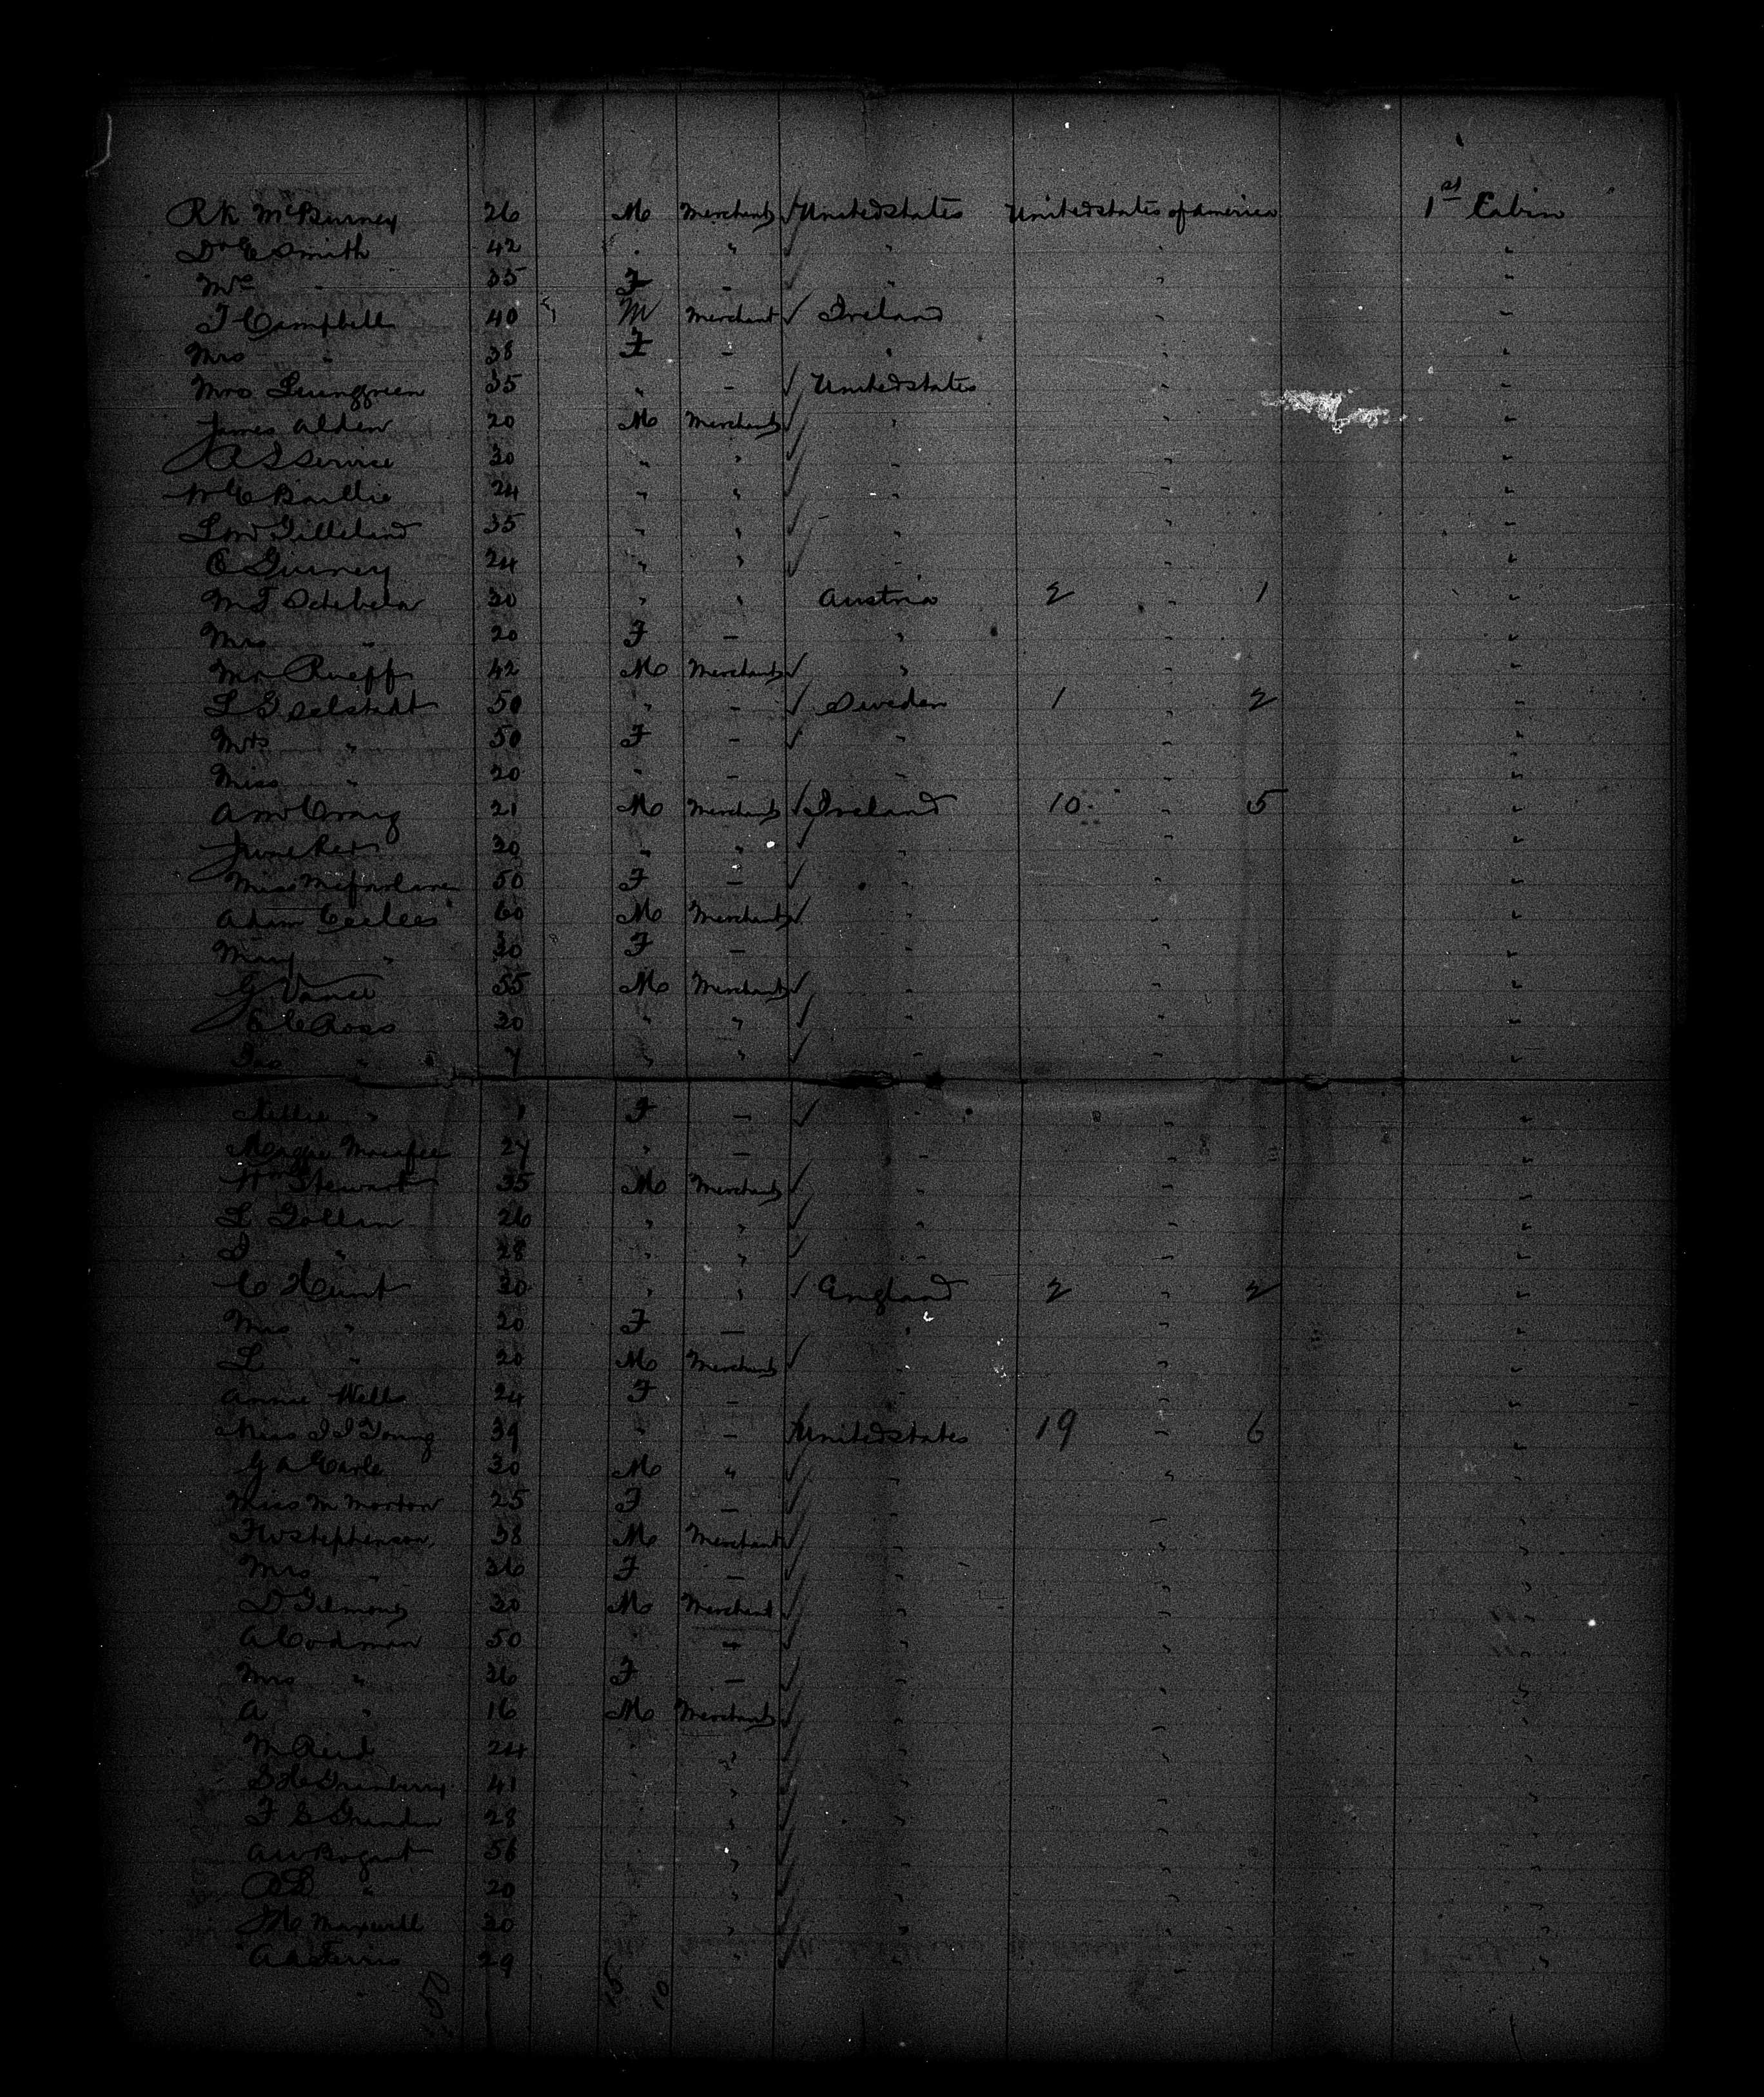 R K McBurney 26 M Merchant ✓ United states United states of america 1st Cabin
Dr E Smith 42 " " ✓ " " "
Mrs " 35 F - ✓ " " "
T Campbell 40 M Merchant ✓ Ireland " "
Mrs " 38 F - " " "
Mrs 35 " - ✓ United states " "
James Alden 20 M Merchant ✓ " " "
A S Service 30 " " ✓ " " "
W C Baillie 24 " " ✓ " " "
L W Gilleland 35 " " ✓ " " "
C Gurney 24 " " ✓ " " "
M T 30 " " Austria 2 " 1 "
Mrs " 20 F - " " "
Mr Rueff 42 M Merchant ✓ " " "
L G 50 " - ✓ Sweden 1 " 2 "
Mrs " 50 F - ✓ " " "
Miss " 20 " - " " "
A W Craig 21 M Merchant ✓ Ireland 10 " 5 "
30 " " ✓ " " "
Miss McFarlane 50 F - ✓ " " "
Adam 60 M Merchant ✓ " " "
Mary " 30 F - " " "
G Vance 55 M Merchant ✓ " " "
Ross 30 " " ✓ " " "
Jas " 7 " " ✓ " " "
Nellie " F - ✓ " " "
Maggie 27 " - " " "
Wm Stewart 35 M Merchant ✓ " " "
L Gollan 26 " " ✓ " " "
" 28 " " ✓ " " "
C Hunt 30 " " ✓ England 2 " 2 "
Mrs " 20 F - " " "
L " 20 M Merchant ✓ " " "
Annie Wells 24 F - " " "
Miss Young 39 " - ✓ United states 19 " 6 "
G A Earle 30 M " ✓ " " "
Miss M Morton 25 F - ✓ " " "
F W Stephenson 38 M Merchant ✓ " " "
Mrs " 36 F - ✓ " " "
D Gilmour 30 M Merchant ✓ " " "
A Codman 50 " ✓ " " "
Mrs " 36 F - ✓ " " "
A " 16 M Merchant ✓ " " "
M Reid 24 " ✓ " " "
Granberry 41 " ✓ " " "
F S 28 " ✓ " " "
A W Bogart 56 " ✓ " " "
" 20 " ✓ " " "
Maxwell 30 " ✓ " " "
29 " ✓ " " "